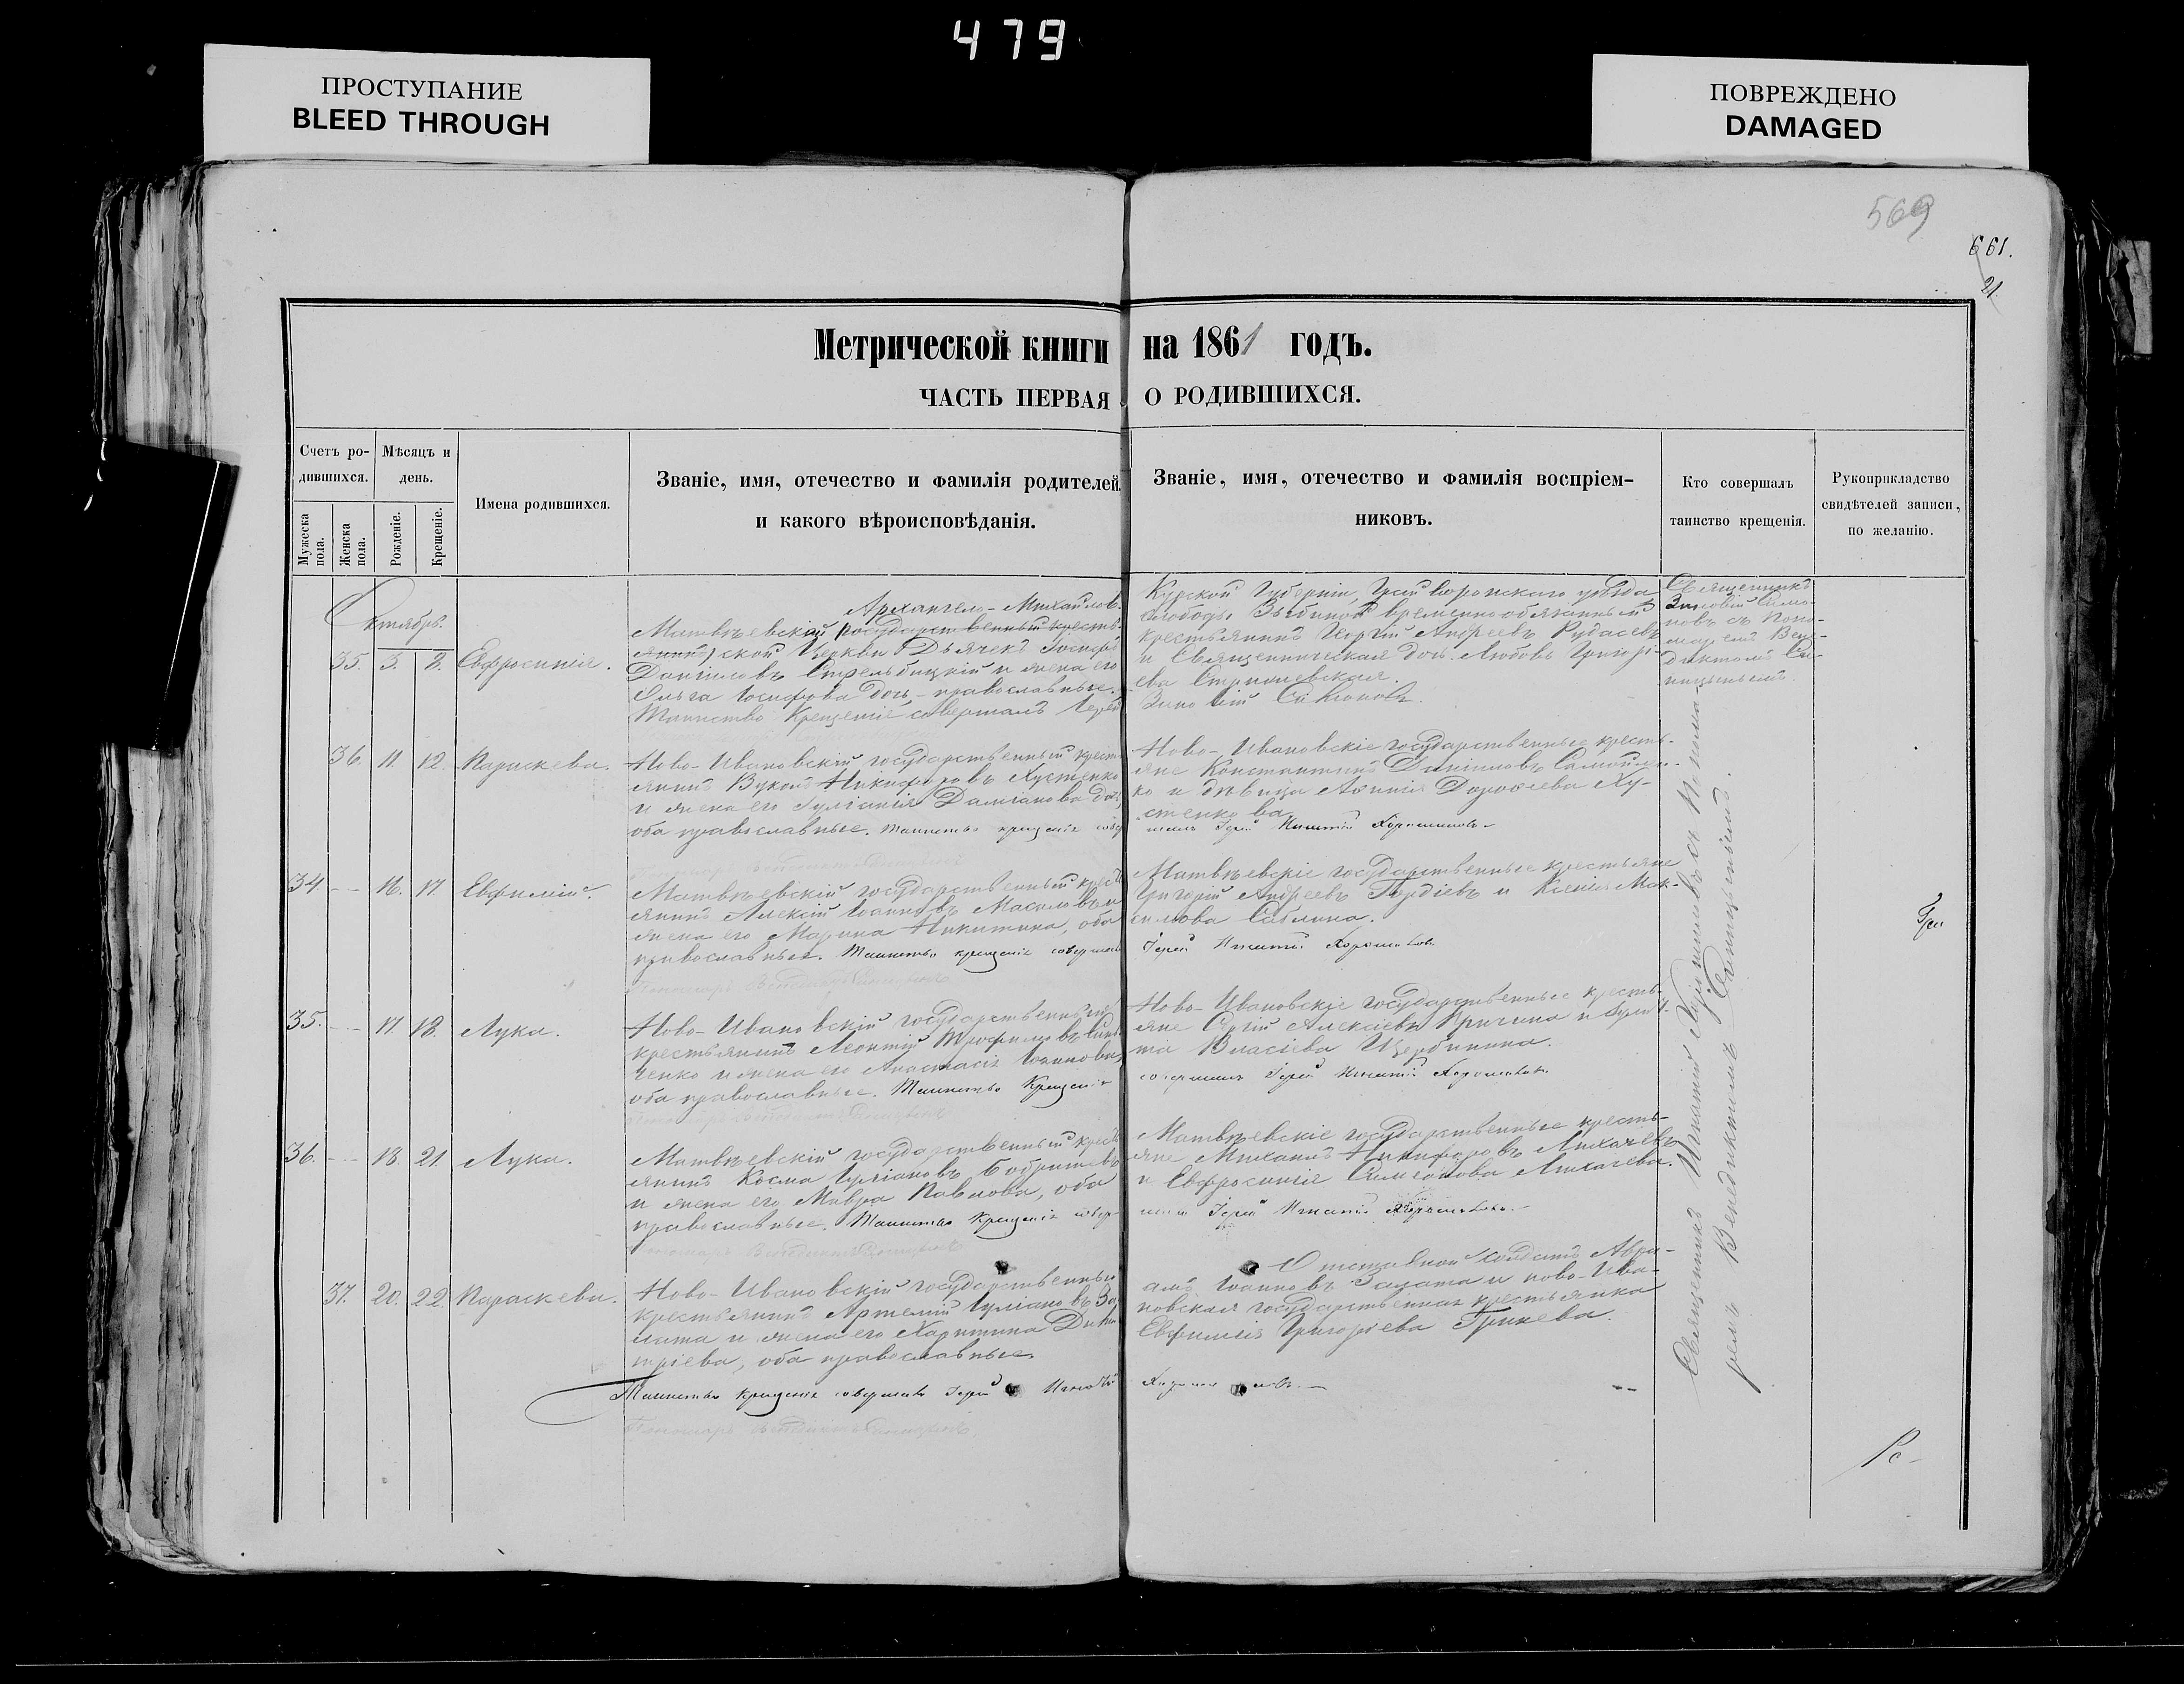 479
ПРОСТУПАНИЕ
BLEED THROUGH
ПОВРЕЖДЕНО
DAMAGED
569
661.
21.
Метрической книги на 1861 годъ.
ЧАСТЬ ПЕРВАЯ О РОДИВШИХСЯ.
Счетъ ро-
дившихся.
Мужеска
пола.
Женска
пола.
Мѣсяцъ и
день.
Рожденіе.
Крещеніе.
Имена родившихся.
Званіе, имя, отечество и фамилія родителей,
и какого вѣроисповѣданія.
Званіе, имя, отечество и фамилія воспріем-
никовъ.
Кто совершалъ
таинство крещенія.
Рукоприкладство
свидѣтелей записи,
по желанію.
Октябрь.
35. 3. 8. Евфросинія.
Архангело-Михайлов-
Матвѣевскій государственный кресть-
янинъ) ской Церкви Дьячекъ Іосифъ
Даніиловъ Стрельбицкій и жена его
Ольга Іосифова дочь - православные.
Таинство Крещенія совершалъ Іерей
Курской Губерніи, Грайворонскаго уѣзда
слободы временнообязанный
крестьянинъ Георгій Андреевъ
и Священническая дочь Любовь Григорі-
ева
Зиновій
Священникъ
Зиновій
новъ съ Поно-
маремъ Вене-
диктомъ Си-
ницынымъ.
36. 11. 12. Параскева.
Ново-Ивановскій государственный кресть-
янинъ Вуколъ Никифоровъ Хустенко
и жена его Іуліанія Даміанова дочь,
оба православные. Таинство крещенія совер
Ново-Ивановскіе государственные кресть-
яне Константинъ Даніиловъ Самойлен-
ко и дѣвица Дороѳеева Ху-
стенкова
шалъ Іерей Игнатій Хорошиловъ
34 16. 17 Евфимій.
Матвѣевскій государственный кресть
янинъ Алексій Іоанновъ Масловъ и
жена его Марина Никитина, оба
православные. Таинство крещенія совершалъ
Матвѣевскіе государственные крестьяне
Григорій Андреевъ Гордіевъ и Ксенія Мак-
симова Саблина.
Іерей Игнатій Хорошиловъ
35. 17. 18. Лука.
Ново-Ивановскій государственный
крестьянинъ Леонтій Трофимовъ
ченко и жена его Анастасія Іоаннова,
оба православные. Таинство Крещенія
Ново-Ивановскіе государственные кресть-
яне Сергій Алексіевъ Причина и Іулит-
та Власіева Щербинина.
совершалъ Іерей Игнатій Хорошиловъ
36. 18. 21. Лука.
Матвѣевскій государственный кресть
янинъ Косма Іуліановъ
и жена его Мавра Павлова, оба
православные. Таинство Крещенія совер-
Матвѣевскіе государственные кресть-
яне Михаилъ Никифоровъ Лихачевъ
и Евфросинія Симеонова Лихачева.
шалъ Іерей Игнатій Хорошиловъ
37. 20. 22. Параскева.
Ново-Ивановскій государственный
крестьянинъ Артемій Іуліановъ За
лата и жена его Харитина Дими
тріева, оба православные.
Таинство Крещенія совершалъ Іерей Игнатій Хорошиловъ
Отставной солдатъ Авра-
амъ Іоанновъ Залата и ново-Ива-
новская государственная крестьянка
Евфимія Григоріева Грикева.
Пономарь Венедиктъ Синицынъ
Священникъ Игнатій Хорошиловъ съ Понома-
ремъ Венедиктомъ Синицынымъ.